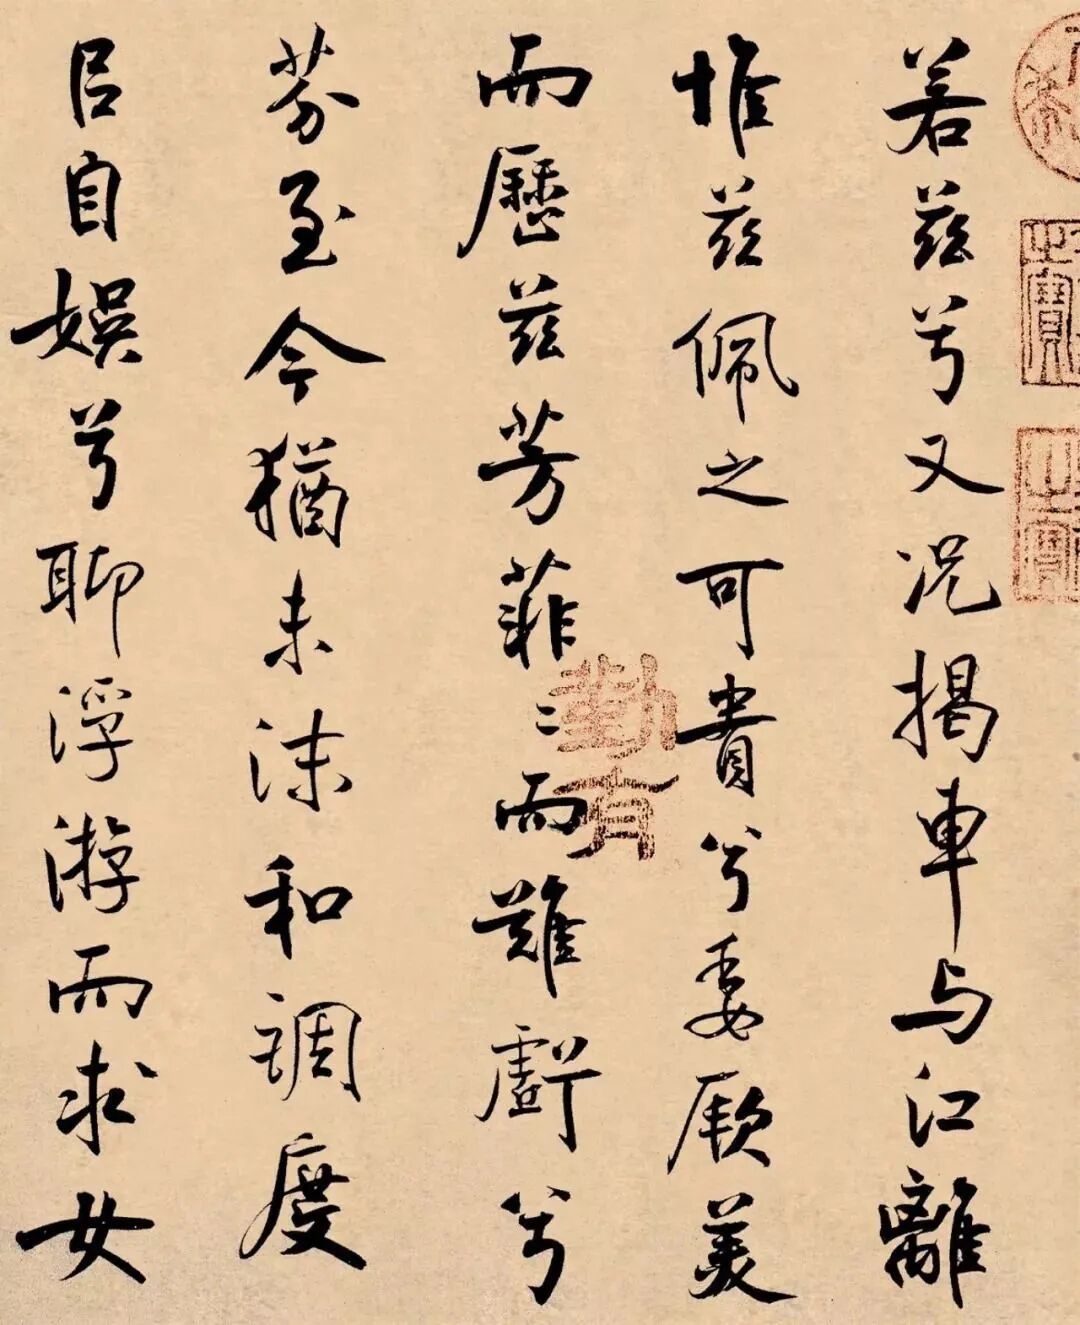 之寶
之寶
若茲兮又况揭車与江離
惟茲佩之可貴兮委厥美
而歷茲芳菲〻而難虧兮
勤有
芬至今猶未沬和調度
㠯自娛兮聊浮游而求女